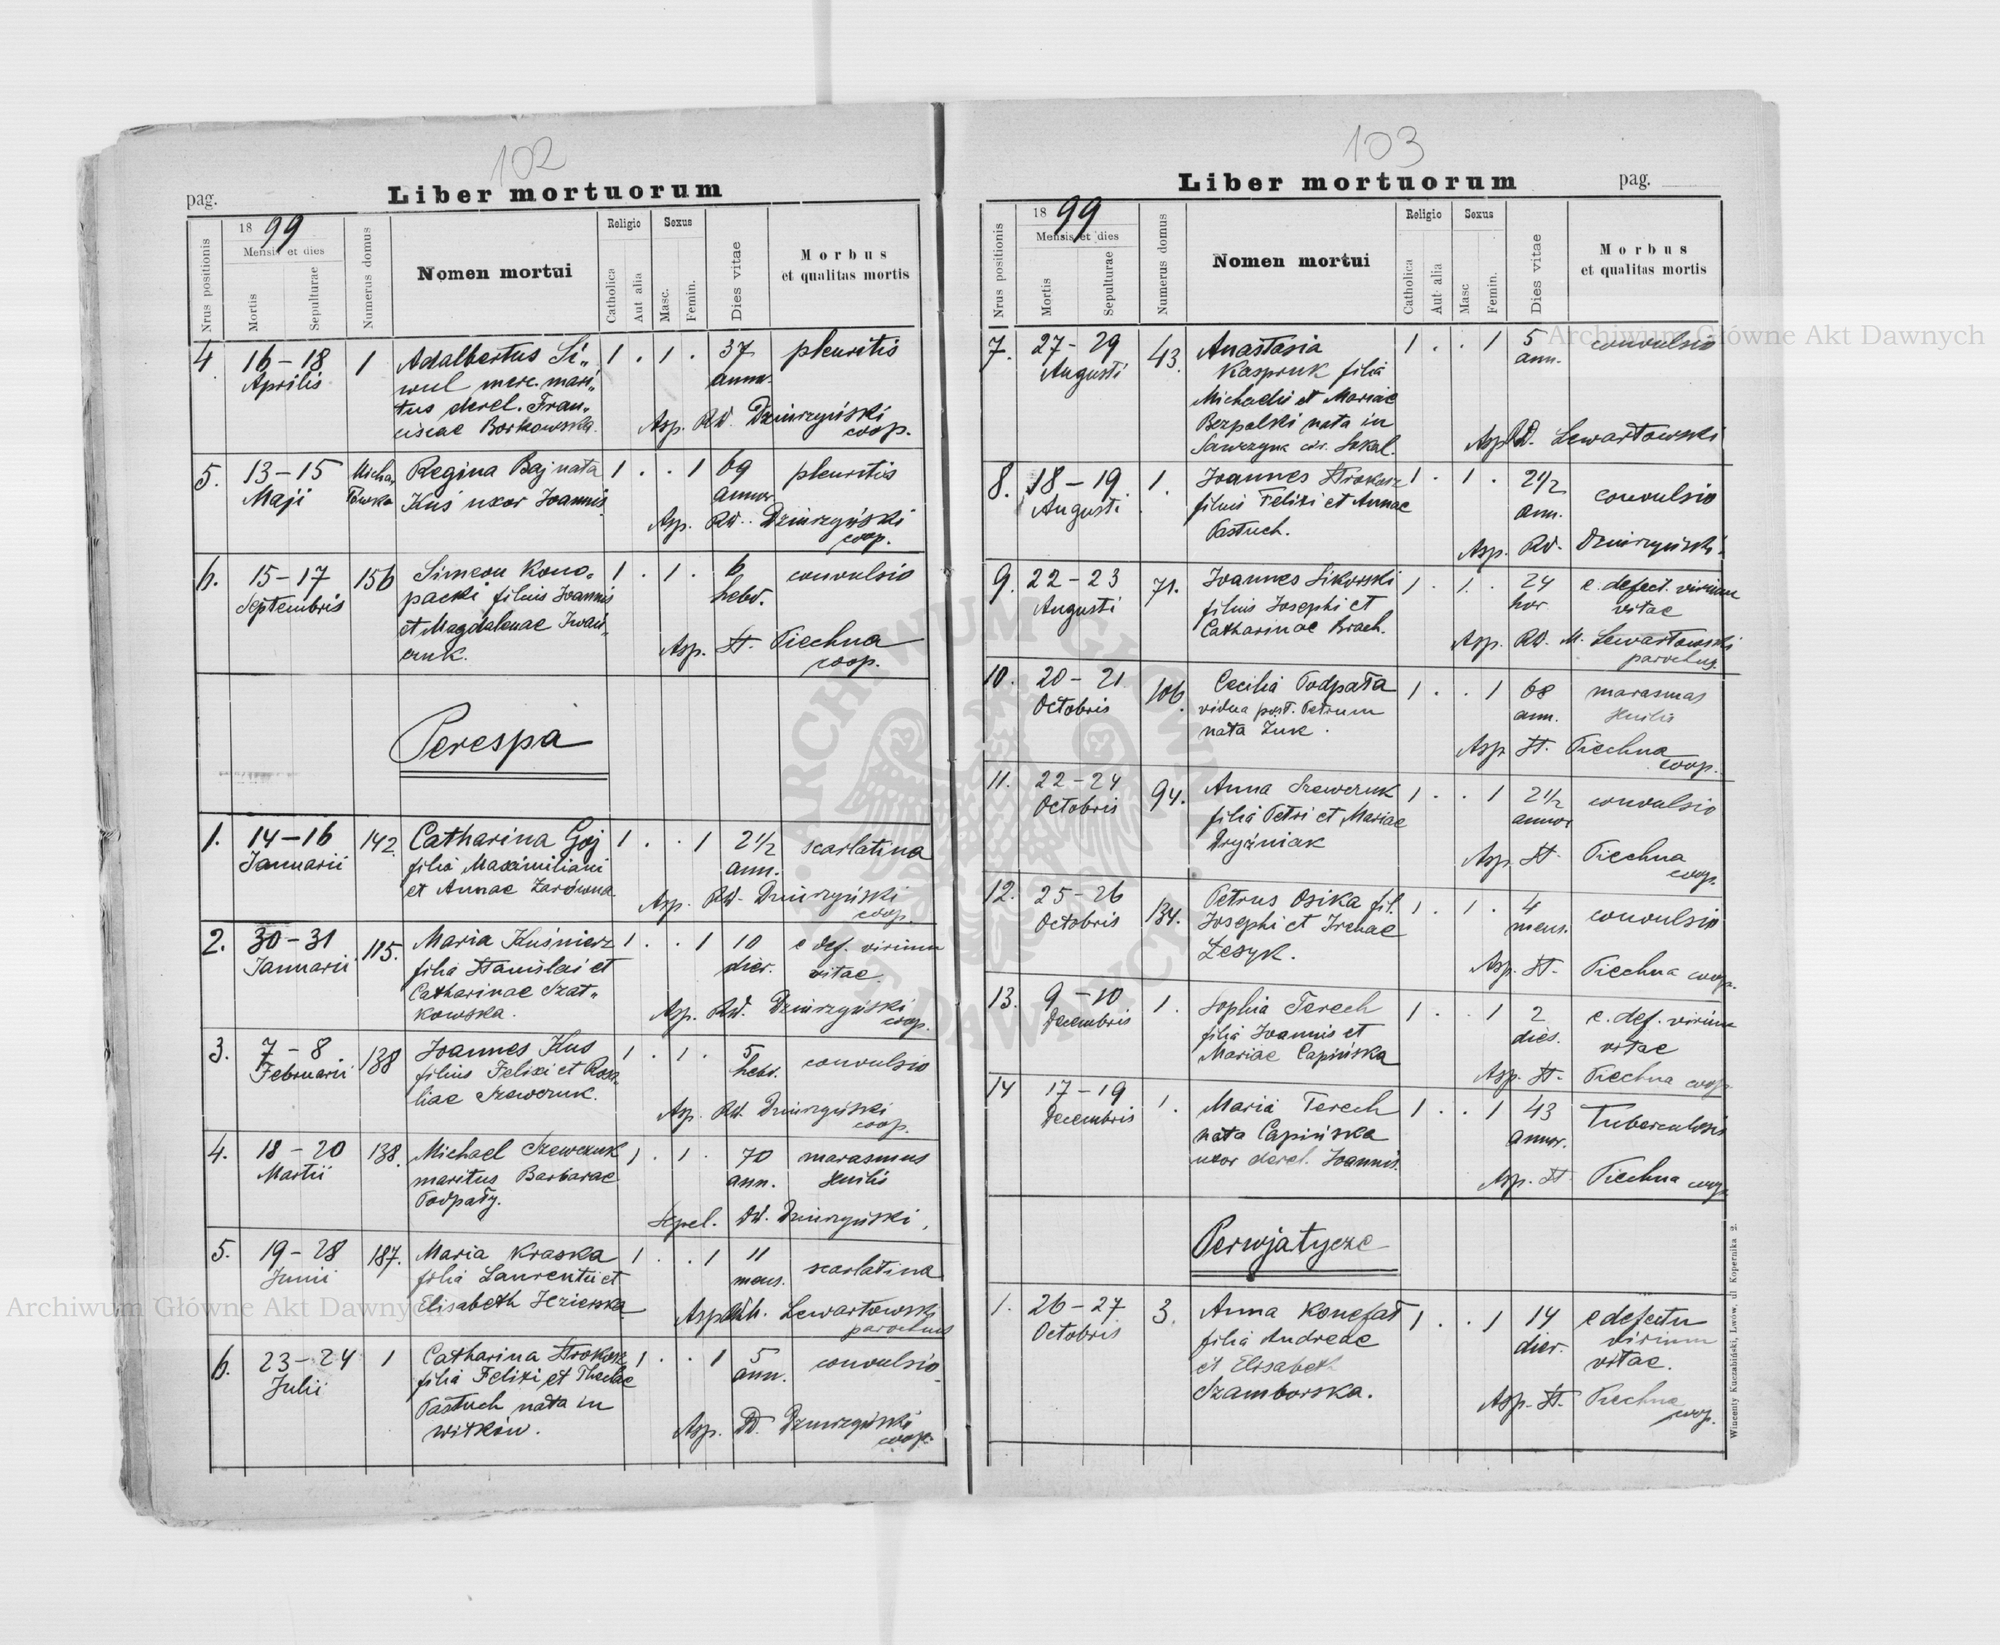 102
Liber mortuorum
pag.
Nrus positionis
1899
Mensis et dies
Mortis
Sepulturae
Numerus domus
Nomen mortui
Religio
Catholica
Aut alia
Sexus
Masc.
Femin.
Dies vitae
Morbus
et qualitas mortis
4 16-18 1 Adalbertus Si„ 1 . 1 . 37 pleuritis
Aprilis wul merc. mari„ annor.
tus derel. Fran„
ciscae Borkowska. Asp. Rd. Dziurzyński
coop.
5. 13-15 Micha„ Regina Baj nata 1 . . 1 69 pleuritis
Maji łówka Kuś uxor Joannis annor.
Asp. Rd. Dziurzyński
coop.
6. 15-17 156 Simeon Kono„ 1 . 1 . 6 convulsio
Septembris packi filius Joannis hebd.
et Magdalenae Iwań„
czuk. Asp. St. Piechna
coop.
Perespa
1. 14-16 142 Catharina Goj 1 . . 1 2 1/2 scarlatina
Januarii filia Maximiliani ann.
et Annae Zarówna Asp. Rd. Dziurzyński
coop.
2. 30-31 115. Maria Kuśnierz 1 . . 1 10 e def. virium
Januarii filia Stanislai et dier. vitae
Catharinae Szat„
kowska. Asp. Rd. Dziurzyński
coop.
3. 7-8 138 Joannes Kus 1 . 1 . 5 convulsio
Februarii filius Felixi et Rosa„ hebd.
liae Szewczuk. Asp. Rd. Dziurzyński
coop.
4. 18-20 138. Michael Szewczuk 1 . 1 . 70 marasmus
Martii maritus Barbarae ann. senilis
Podpały. Sepel. Rd. Dziurzyński.
5. 19-28 187. Maria Kraska 1 . . 1 11 scarlatina
Junii filia Laurentii et mens.
Elisabeth Jezierska Asp. Lewartowski
parochus
6. 23-24 1 Catharina Strokosz 1 . . 1 5 convulsio
Julii filia Felixi et Theclae ann.
Pastuch nata in
Witków. Asp. Rd. Dziurzyński
coop.
103
Liber mortuorum
pag.
Nrus positionis
1899
Mensis et dies
Mortis
Sepulturae
Numerus domus
Nomen mortui
Religio
Catholica
Aut alia
Sexus
Masc
Femin.
Dies vitae
Morbus
et qualitas mortis
7. 27-29 43. Anastasia 1 . . 1 5 convulsio
Augusti Kaspruk filia ann.
Michaelis et Mariae
Bezpalski nata in
Sawczyn Sokal. Asp. Rd. Lewartowski
8. 18-19 1. Joannes Strokosz 1 . 1 . 2 1/2 convulsio
Augusti filius Felixi et Annae ann.
Pastuch. Asp. Rd. Dziurzyński.
9. 22-23 71. Joannes Sikorski 1 . 1 . 24 e. defect. virium
Augusti filius Josephi et hor. vitae
Catharinae Brach. Asp. Rd. M. Lewartowski
parochus.
10. 20-21 106. Cecilia Podpała 1 . . 1 68 marasmus
Octobris vidua post. Petrum ann. senilis
nata Żuk. Asp. St. Piechna
coop.
11. 22-24 94. Anna Szewczuk 1 . . 1 2 1/2 convulsio
Octobris filia Petri et Mariae annor
Dryźniak Asp. St. Piechna
coop.
12. 25-26 134. Petrus Osika fil. 1 . 1 . 4 convulsio
Octobris Josephi et Irenae mens.
Łesyk. Asp. St. Piechna coop.
13. 9-10 1. Sophia Terech 1 . . 1 2 e. def. virium
Decembris filia Joannis et dies. vitae
Mariae Capińska Asp. St. Piechna coop.
14 17-19 1. Maria Terech 1 . . 1 43 Tuberculosis
Decembris nata Capińska annor.
uxor derel. Joannis. Asp. St. Piechna coop.
Perwjatycze
1. 26-27 3. Anna Konefał 1 . . 1 14 e defectu
Octobris filia Andreae dier. virium
et Elisabeth vitae.
Szamborska. Asp. St. Piechna
coop.
Wincenty Kuczabiński, Lwów, ul Kopernika 2.
Archiwum Główne Akt Dawnych
Archiwum Główne Akt Dawnych
ARCHIWUM GŁÓWNE AKT DAWNYCH